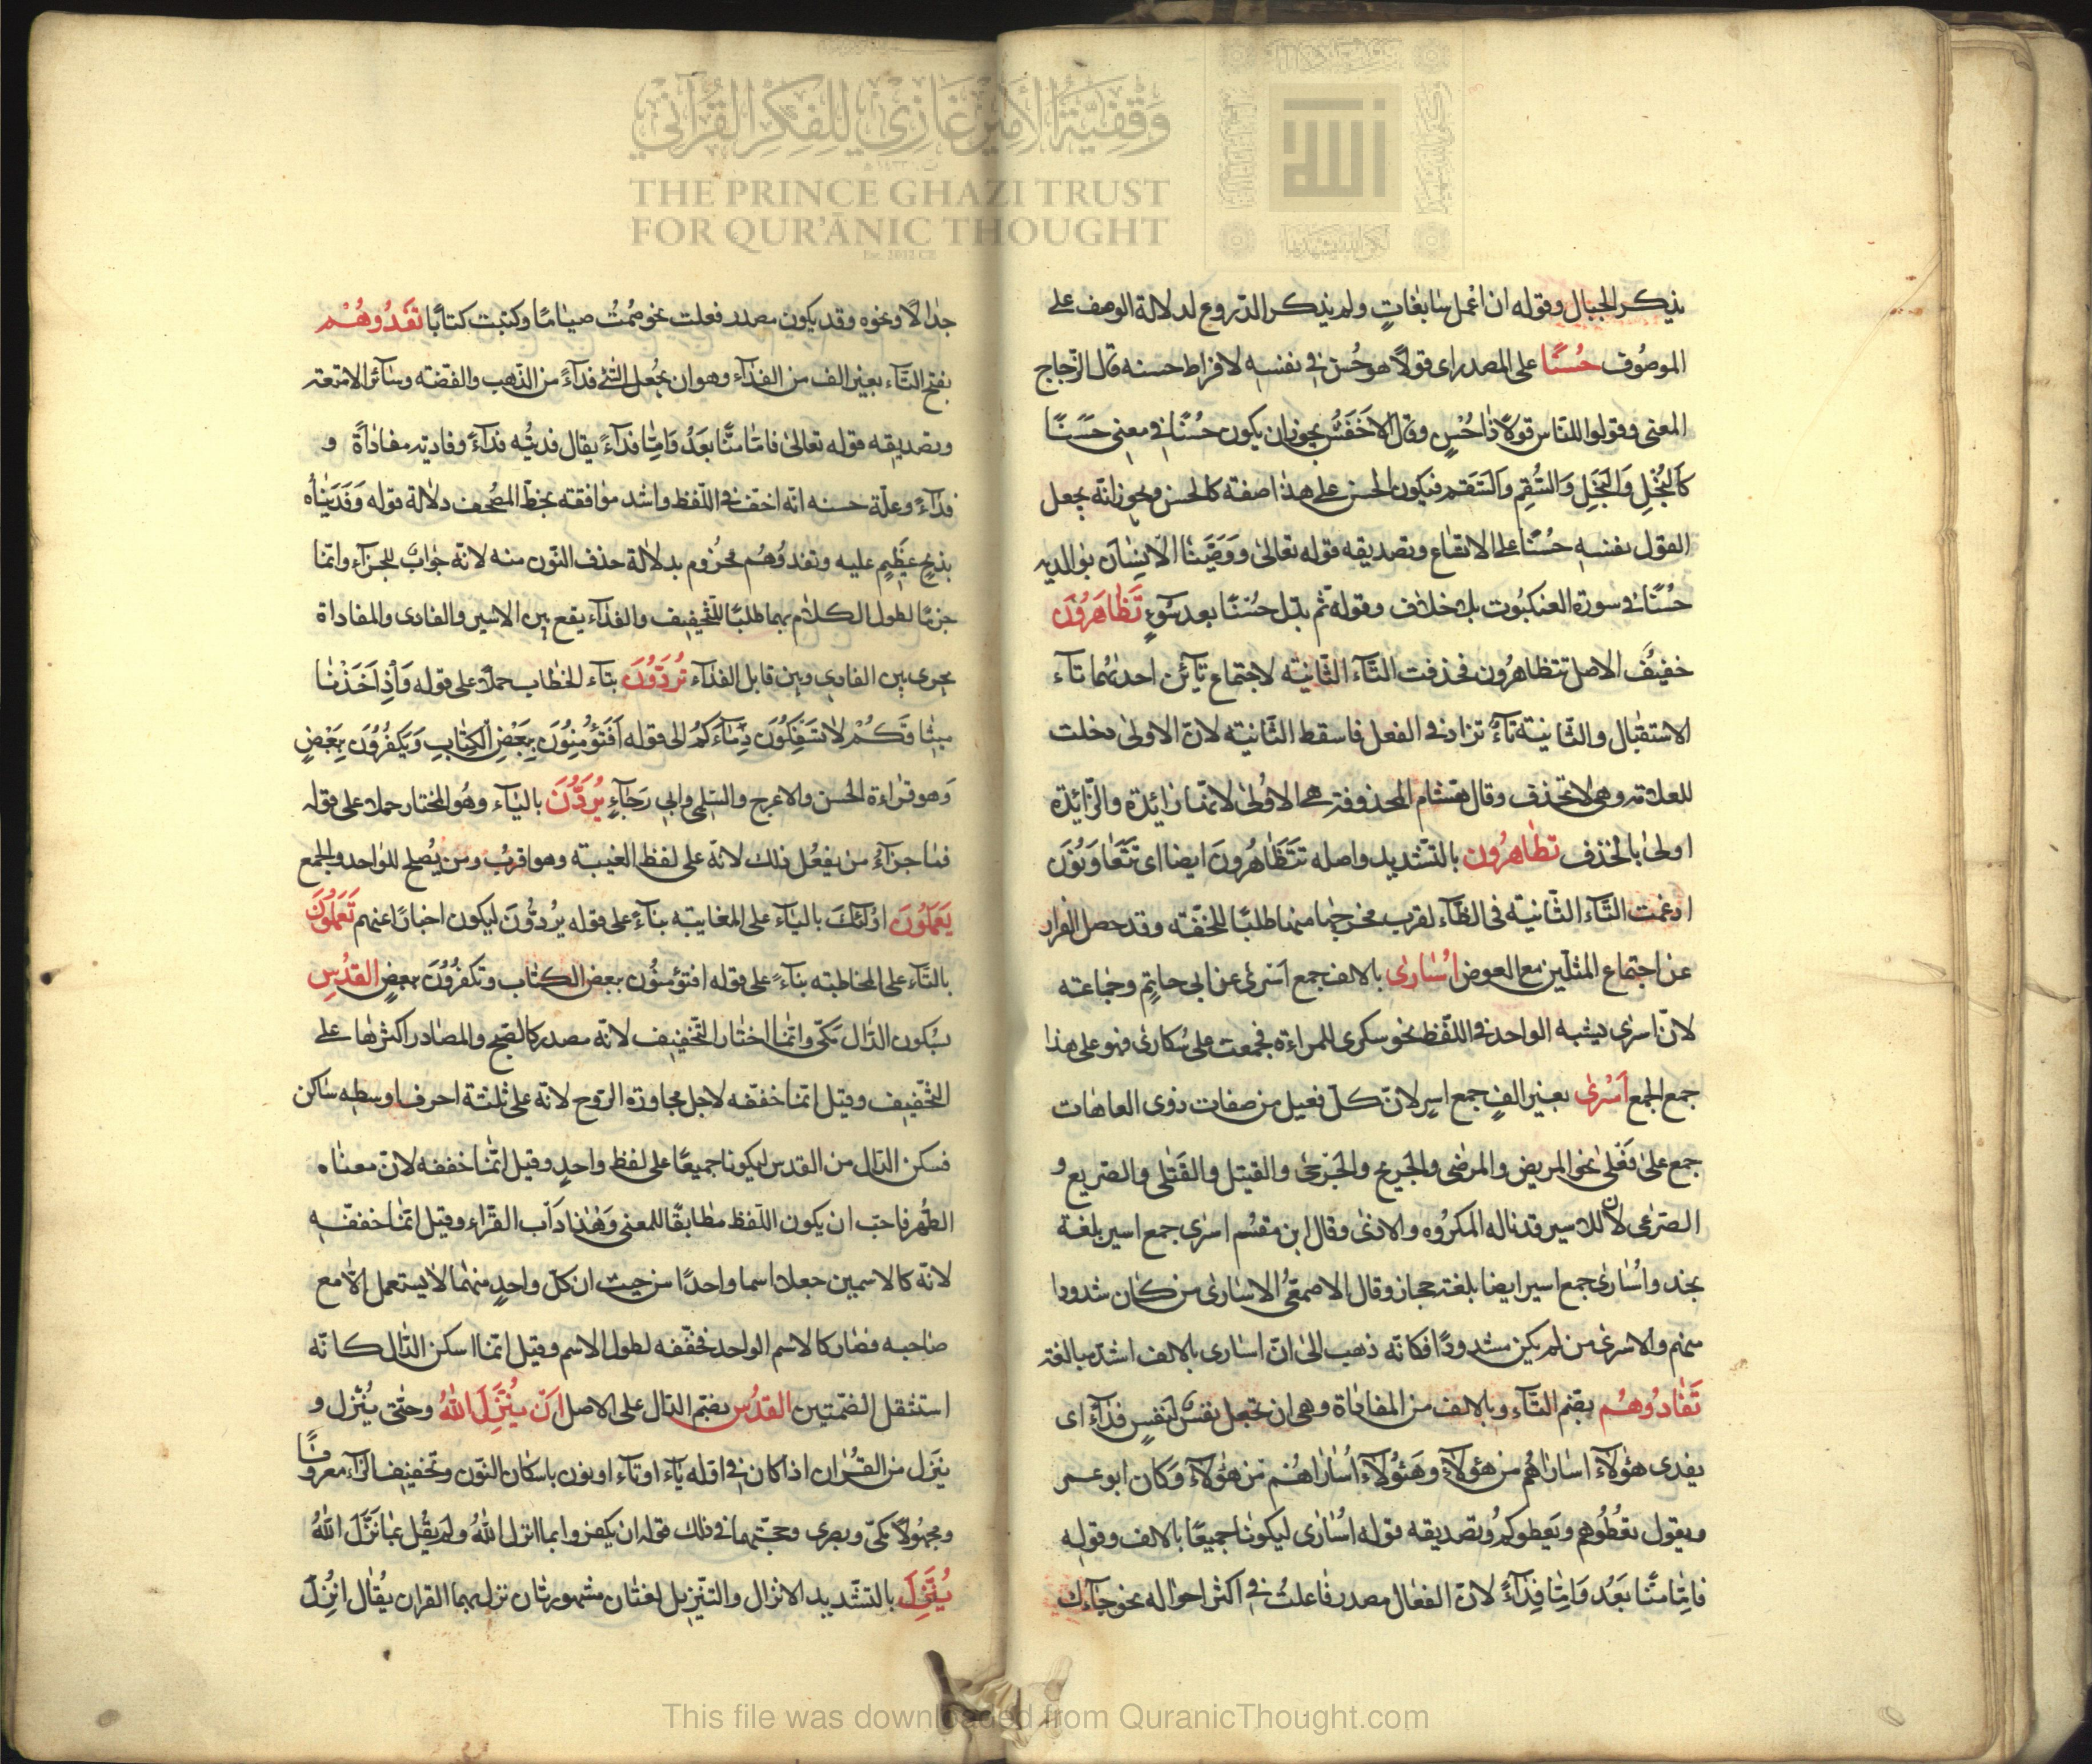 وقفية الأمير غازي للفكر القرآني
THE PRINCE GHAZI TRUST
FOR QUR'ĀNIC THOUGHT
Est. 2012 CE
الله
يذكر الجبال وقوله ان اعمل سابغاتٍ ولم يذكر الدّروع لدلالة الوصف على
الموصُوف حُسنًا على المصدر اى قولاً هو حُسن فى نفسه لافراط حسنه قال الزّجاج
المعنى وقولوا للنّاس قولاً ذا حُسْنٍ وقال الاخفش يجوز ان يكون حُسْنًا فى معنى حَسَنًا
كالبُخْلِ والبَخَلِ والسُّقمِ والسَّقَم فيكون الحسن على هذا صفة كالحسن ويجوز انّه جعل
القول نفسه حُسْنًا على الاتساع وتصديقه قوله تعالىٰ ووصّينا الانسان بوالديه
حُسْنًا فى سورة العنكبُوت بلا خلاف وقوله ثم بدّل حُسْنًا بعد سُوٓءٍ تَظَاهَرُونَ
خفيفٌ الاصل تتظاهرُون فحذفت التّآء الثّانية لاجتماع تآئين احدىهُما تآء
الاستقبال والثّانية تآءٌ تزاد فى الفعل فاسقط الثّانية لانّ الاولىٰ دخلت
للعلامة وهى لا تحذف وقال هشام المحذوفة هى الاولىٰ لانّها زائدة والزّائدة
اولىٰ بالحذف تظّاهرُون بالتّشديد واصله تتظاهرُونَ ايضا اى تتعاونُونَ
ادغمت التّاء الثّانية فى الظّاء لقرب مخرجهما منها طلبًا للخفّة وقد حصل الفرار
عن اجتماع المثلين مع العوض اُسٰارىٰ بالالف جمع اسْرىٰ عن ابى حاتمٍ وجماعته
لانّ اسرى يشبه الواحد فى اللّفظ نحو سكرى للمراءة فجمعت على سُكارىٰ فهو على هذا
جمع الجمع اَسْرىٰ بغير الفٍ جمع اسيرٍ لانّ كلّ فعيل من صفات ذوى العاهات
جمع علىٰ فَعْلىٰ نحو المريض والمرضىٰ والجريح والجَرْحىٰ والقتيل والقَتلى والصّريع و
الصّرعى لانّ للاسير قد ناله المكرُوه والاذىٰ وقال ابن مقسُم اسرى جمع اسير بلغة
نجد واُسٰارىٰ جمع اسير ايضا بلغة حجاز وقال الاصمعُى الاسارىٰ من كان مشدودا
منهم والاسرىٰ من لم يكن مشدودًا فكانّه ذهب الىٰ انّ اسارى بالالف اشدّ مبالغة
تُفَادُوهُم بضمّ التّآء وبالالف من المفاداة وهى ان تجعل نفسٌ لنفسٍ فدآءً اى
يفدى هؤلآء اساراهُم من هؤلآء وهَؤُلآء اُساراهُم من هؤلآء وكان ابو عمر
ويقول تعُطُوهم ويَعطوكُم وتصديقه قوله اُسٰارٰى ليكونا جميعًا بالالف وقوله
فامّا منًّا بَعْدُ وَامّا فِدآءً لانّ الفعال مصدر فاعلتُ فى اكثر احواله نحو جآدَلت
جدٰالاً ونحوه وقد يكون مصدر فعلت نحو صُمتُ صيٰامًا وكتبت كتابًا تَفْدُوهُم
بفتح التّآء بغير الف من الفدآء وهو ان يجُعل الشّئ فدآءً من الذّهب والفضّة وسآئر الامتعة
وتصديقه قوله تعالىٰ فامّا منًّا بَعْدُ وَامّا فدآءً يقال فديتُه فدآءً وفاديته مفاداةً و
فدآءً وعلّة حسنه انّه اخفّ فى اللّفظ واشد موافقته بخطّ المصُحف دلالة قوله وَفَدَيْناهُ
بذِبحٍ عَظِيمٍ عليه وتفدوُهُم مجزُوم بدلالة حذف النّون منه لانّه جوابٌ للجزآء وانّما
جزمًا لطول الكلام بهما طلبًا للتّخفيف والفدآء يقع بين الاثنين والفادى والمفاداة
تجرى بين الفادى وبين قابل الفدآء تُرَدُّونَ بتآء الخطاب حملاً على قوله وَاِذْ اَخَذْنا
ميثاقَكُمْ لا تَسْفِكُونَ دِمآءَكُمْ الى قوله اَفَتُؤْمِنُونَ بِبَعْضِ الكِتابِ وَتَكفُرُونَ بِبَعْضٍ
وهو قراءة الحسن والاعرج والسّلمى وابى رَجآءٍ يُرَدُّونَ باليآء وهُو المختار حملا على قوله
فما جزآءُ من يفعُل ذلك لانّه على لفظ الغيبة وهو اقربُ ومن يُصلح للواحد والجمع
يَعمَلُونَ اوُلئكَ باليآء على المغايبة بنآءً على قوله يُردّونَ ليكون اخبارًا عنهم تَعمَلُونَ
بالتّآء على المخاطبة بنآءً على قوله افتؤمنُون ببعض الكتاب وتكفرُونَ ببعضٍ القدْسِ
بسُكون الدّال مكّى وانّما اختار التّخفيف لانّه مصدر كالصّبح والمصادر اكثرها على
التّخفيف وقيل انّما خفّفه لاجل مجاورة الرّوح لانّه على ثلثة احرف اوسطه ساكن
فسكن الدّال من القدس ليكونا جميعًا على لفظ واحدٍ وقيل انّما خففه لانّ معناه
الطّهر فاحبّ ان يكون اللّفظ مطابقًا للمعنى وهٰذا دَاب القرّاء وقيل انّما خففّه
لانّه كالاسمين جعلا اسما واحدًا من حيث ان كلّ واحدٍ منهُما لا يستعمل الاّ مع
صاحبه فصار كالاسم الواحد فخفّفه لطول الاسم وقيل انّما اسكن الدّال كانّه
استثقل الضّمتين القدُس بضمّ الدّال على الاصل اَنْ يُنْزِلَ اللّٰهُ وحتّى يُنْزل و
ينَزل من القرُان اذا كان فى اوّله يآء او تآء او نون باسكان النّون وتخفيف الزآء معروفًا
ومجهُولاً مكّى وبصرى وحجّتهما فى ذلك قوله ان يكفروا بما انزل اللّٰهُ ولم يقُل بما نَزَّلَ اللّٰهُ
يُنَزِّلَ بالتشّديد الانزال والتنّزيل لغتان مشهورتان نزل بهما القران يقُال انُزِلَ
This file was downloaded from QuranicThought.com